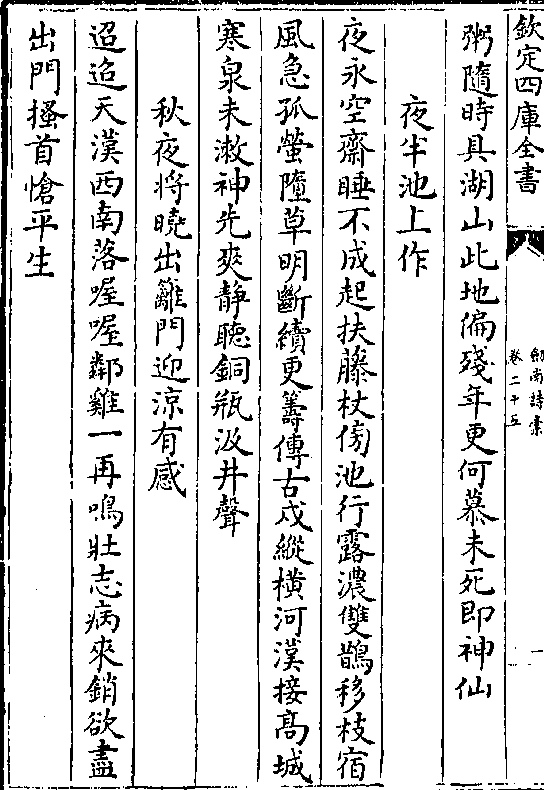 欽定四庫全書
劔南詩藁
卷二十五
一
粥隨時具湖山此地偏殘年更何慕未死即神仙
夜半池上作
夜永空齋睡不成起扶藤杖傍池行露濃雙鵲移枝宿
風急孤螢墮草明斷續更籌傳古戍縱橫河漢接髙城
寒泉未潄神先爽靜聽銅瓶汲井聲
秋夜將曉出籬門迎涼有感
迢迢天漢西南落喔喔鄰雞一再鳴壯志病來銷欲盡
出門搔首愴平生